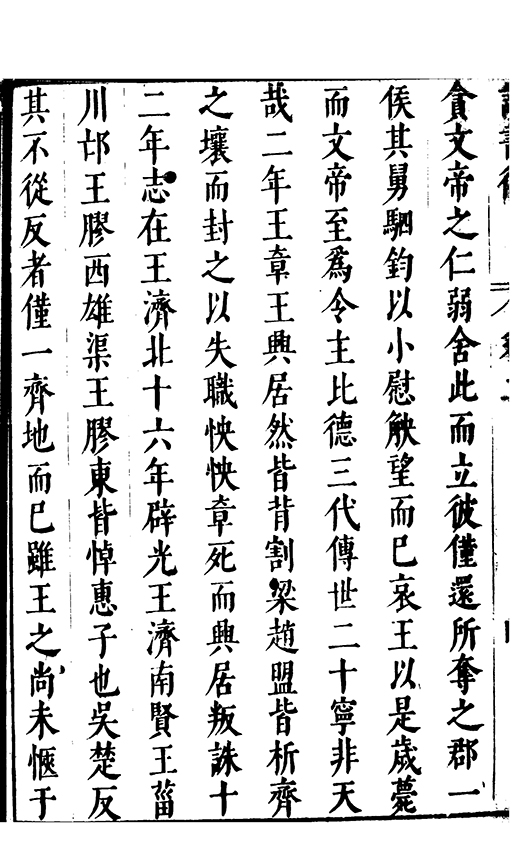 貪文帝之仁弱舍此而立彼僅還所奪之郡一
侯其舅駟鈞以小慰觖望而已哀王以是歲薨
而文帝至爲令主比德三代傳世二十寧非天
哉二年王章王興居然皆背割梁趙盟皆析齊
之壤而封之以失職怏怏章死而興居叛誅十
二年志在王濟北十六年辟光王濟南賢王菑
川卬王膠西雄渠王膠東皆悼惠子也吳楚反
其不從反者僅一齊地而已雖王之尚未愜于